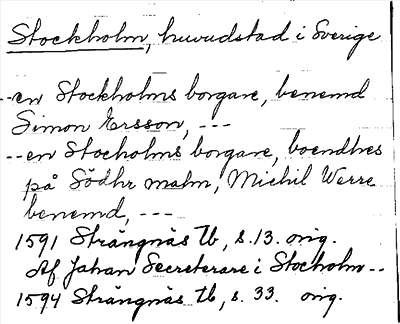 Stockholm, huvudstad i Sverige
--en Stockholms borgare, benemd
Simon Ersson, ---
--en Stocholms borgare, boendhes
på Södhr malm, Michil Werre
benemd, ---
1591 Strängnäs tb, s.13. orig.
Af Johan Secreterare i Stocholm--
1594 Strängnäs tb, s. 33. orig.